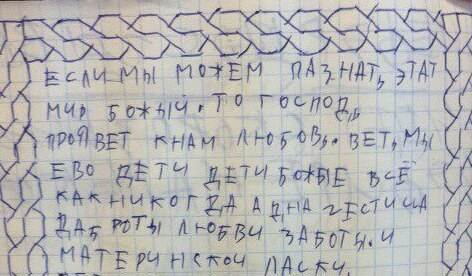 ЕСЛИ МЫ МОЖЕМ ПАЗНАТЬ ЭТАТ
МИР БОЖЫЙ. ТО ГОСПОДЬ
ПРОЯВЕТ КНАМ ЛЮБОВЬ. ВЕТЬ МЫ
ЕВО ДЕТИ ДЕТИ БОЖЫЕ ВСЁ
КАК НИКОГДА АДНА ЧЕСТИЦА
ДАБРОТЫ ЛЮБВИ ЗАБОТЫ. И
МАТЕРИНСКОЙ ЛАСКИ.